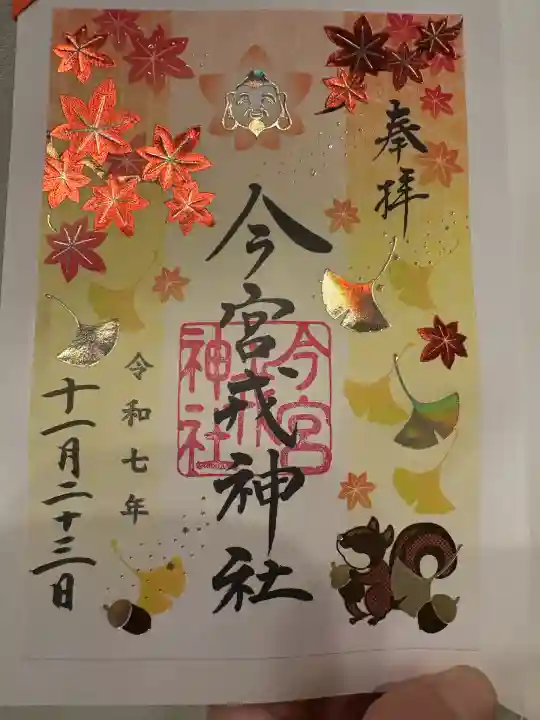 奉拝
今宮戎神社
今宮
戎
神社
令和七年
十一月二十三日